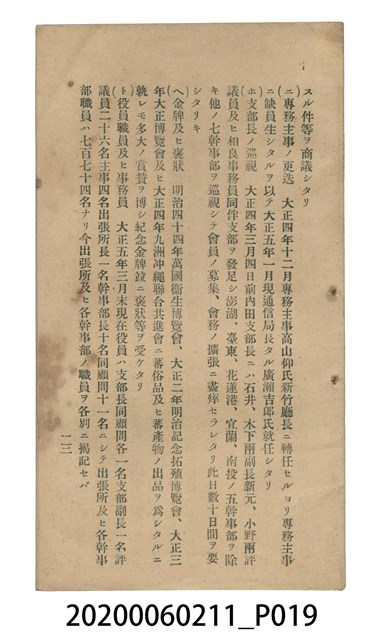 スル件等ヲ商議シタリ
(ニ)專務主事ノ更迭　大正四年十二月專務主事高山仰氏新竹廳長ニ轉任セルヨリ專務主事
ニ缺員生シタルヲ以テ大正五年一月現通信局長タル廣瀨吉郎氏就任シタリ
(ホ)支部長ノ巡視　大正四年三月四日前內田支部長ニハ石井、木下兩副長新元、小野兩評
議員及ヒ相良事務員同伴支部ヲ發足シ澎湖、臺東、花蓮港、宜蘭、南投ノ五幹事部ヲ除
キ他ノ七幹事部ヲ巡視シテ會員ノ募集、會務ノ擴張ニ盡瘁セラレタリ此日數十日間ヲ要
シタリキ
(ヘ)金牌及ヒ褒狀　明治四十四年萬國衞生博覽會、大正二年明治記念拓殖博覽會、大正三
年大正博覽會及ヒ大正四年九洲沖繩聯合共進會ニ蕃俗品及ヒ蕃產物ノ出品ヲ爲シタルニ
孰レモ多大ノ賞贊ヲ博シ紀念金牌竝ニ褒狀等ヲ受ケタリ
(ト)役員職員及ヒ事務員　大正五年三月末現在役員ハ支部長同顧問各一名支部副長二名評
議員二十六名主事四名出張所長一名幹事部長十名同顧問十一名ニシテ出張所及ヒ各幹事
部職員ハ七百七十四名ナリ今出張所及ヒ各幹事部ノ職員ヲ各別ニ揭記セハ
一三
20200060211_P019